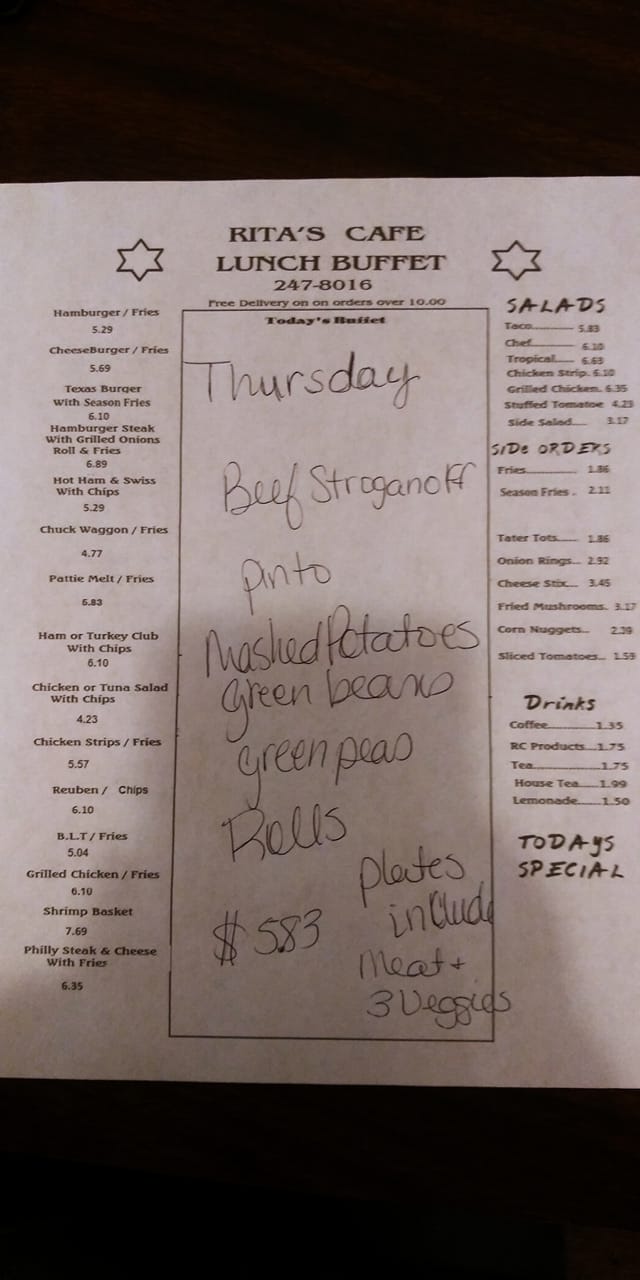 RITA'S CAFE
LUNCH BUFFET
247-8016
Free Delivery on on orders over 10.00
Hamburger / Fries
5.29
CheeseBurger / Fries
5.69
Texas Burger
With Season Fries
6.10
Hamburger Steak
With Grilled Onions
Roll & Fries
6.89
Hot Ham & Swiss
With Chips
5.29
Chuck Waggon / Fries
4.77
Pattie Melt / Fries
5.83
Ham or Turkey Club
With Chips
6.10
Chicken or Tuna Salad
With Chips
4.23
Chicken Strips / Fries
5.57
Reuben / Chips
6.10
B.L.T / Fries
5.04
Grilled Chicken / Fries
6.10
Shrimp Basket
7.69
Philly Steak & Cheese
With Fries
6.35
Today's Buffet
Thursday
Beef Stroganoff
pinto
Mashed Potatoes
green beans
green peas
Rolls
$ 5.83
plates
include
Meat +
3 Veggies
SALADS
Taco.......... 5.83
Chef.......... 6.10
Tropical..... 6.63
Chicken Strip. 6.10
Grilled Chicken. 6.35
Stuffed Tomatoe 4.23
Side Salad.... 3.17
SIDE ORDERS
Fries............ 1.86
Season Fries . 2.11
Tater Tots..... 1.86
Onion Rings... 2.92
Cheese Stix... 3.45
Fried Mushrooms. 3.17
Corn Nuggets.. 2.39
Sliced Tomatoes.. 1.59
Drinks
Coffee............1.35
RC Products...1.75
Tea................1.75
House Tea.....1.99
Lemonade.....1.50
TODAYS
SPECIAL